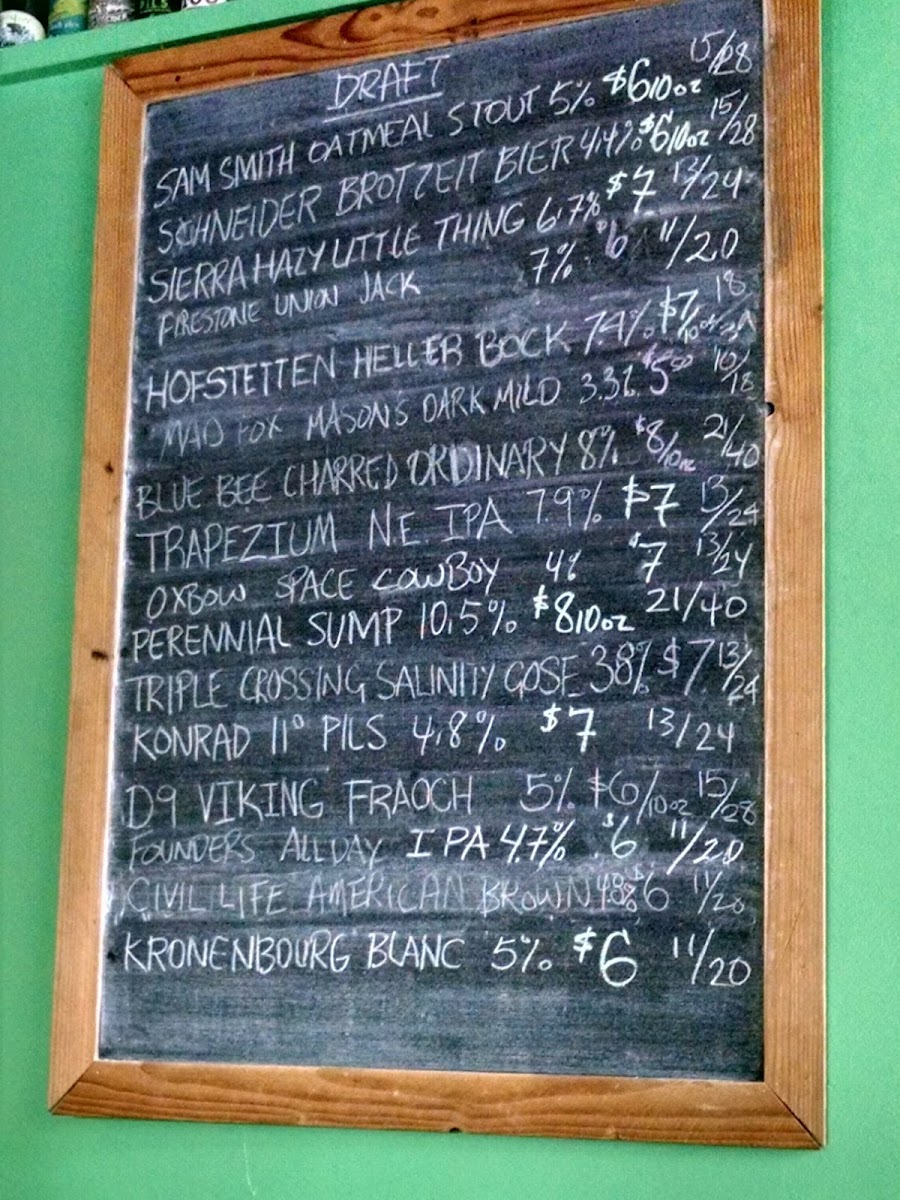 DRAFT
SAM SMITH OATMEAL STOUT 5% $6 10oz 15/28
SCHNEIDER BROTZEIT BIER 4.4% $6 10oz 15/28
SIERRA HAZY LITTLE THING 6.7% $7 13/24
FIRESTONE UNION JACK 7% $6 11/20
HOFSTETTEN HELLER BOCK 7.4% $7/10oz 18/
MAD FOX MASON'S DARK MILD 3.3% $5 10/18
BLUE BEE CHARRED ORDINARY 8% $8/10oz 21/40
TRAPEZIUM N.E. IPA 7.9% $7 13/24
OXBOW SPACE COWBOY 4% $7 13/24
PERENNIAL SUMP 10.5% $8 10oz 21/40
TRIPLE CROSSING SALINITY GOSE 38% $7 13/24
KONRAD 11° PILS 4.8% $7 13/24
D9 VIKING FRAOCH 5% $6/10oz 15/28
FOUNDERS ALL DAY IPA 4.7% $6 11/20
CIVIL LIFE AMERICAN BROWN 4.8% $6 11/20
KRONENBOURG BLANC 5% $6 11/20